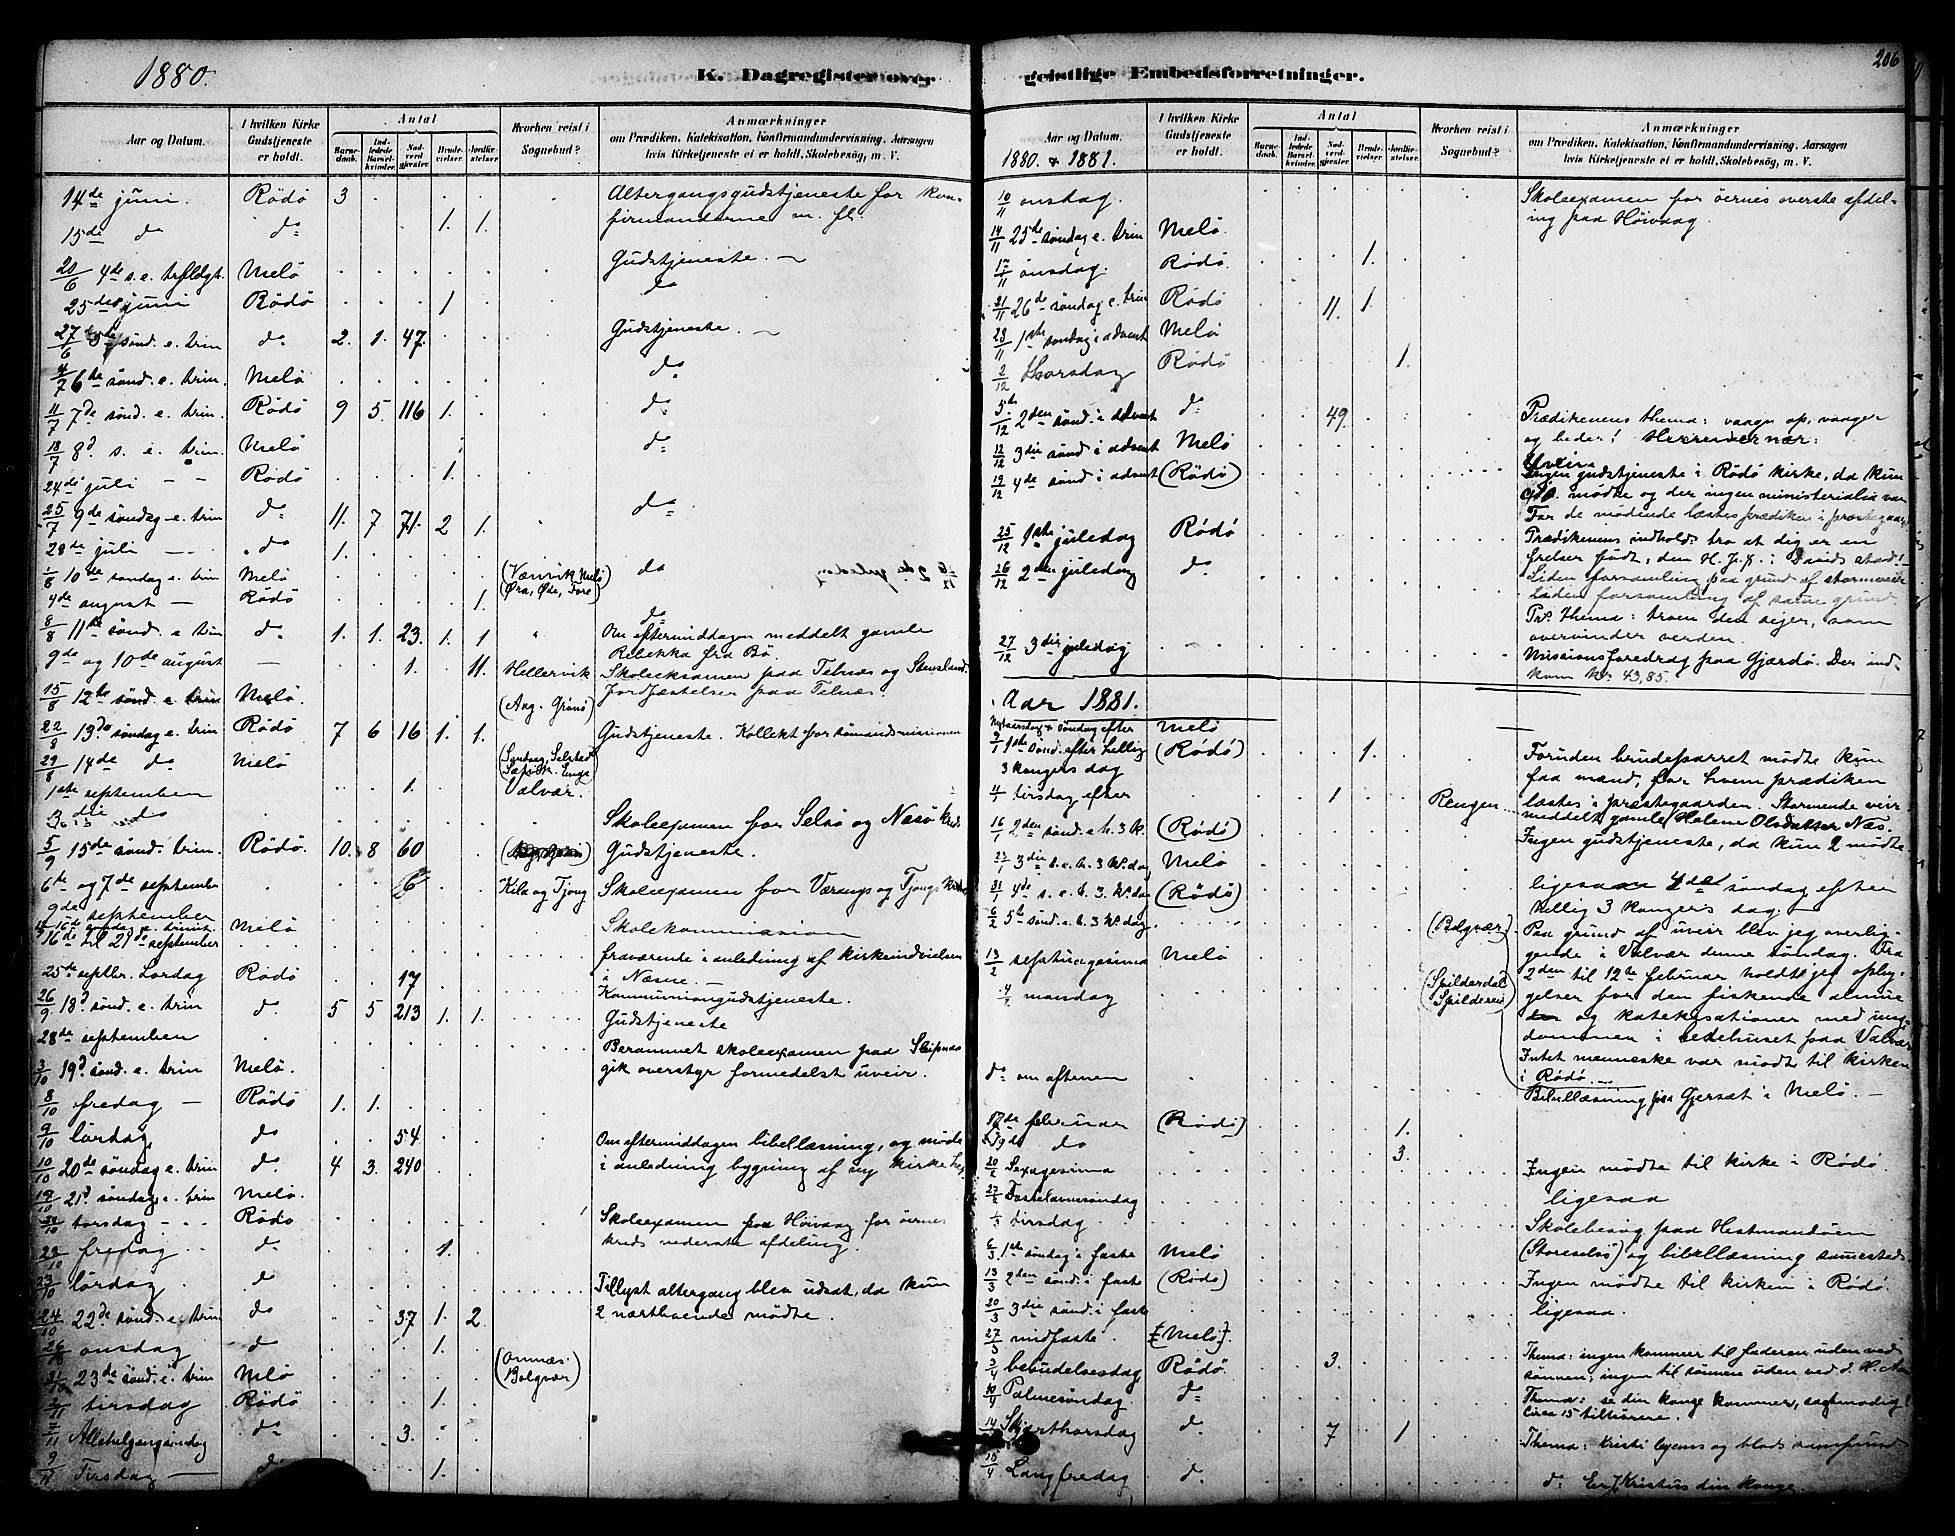 1880.
K. Dagregister over
geistlige Embedsforretninger.
206
Aar og Datum.
I hvilken Kirke Gudstjeneste er holdt.
Antal
Barnedaab.
Indledede Barselkvinder.
Nadverdgjester.
Brudevielser.
Jordfæstelser.
Hvorhen reist i Sognebud?
Anmærkninger
om Prædiken, Katekisation, Konfirmandundervisning, Aarsagen
hvis Kirketjeneste ei er holdt, Skolebesög, m. V.
14de juni. Rödö 3 Altergangsgudstjeneste for kon-
firmanderne m. fl.
15de do do 1. 1.
20/6 4de s. e. trefldgt. Melö Gudstjeneste.
25de juni Rödö 1 do
27/6 5te sönd. e. trin do 2. 1. 47. Gudstjeneste.
4/7 6te sönd. e. trin. Melö do
11/7 7de sönd. e. trin. Rödö 9 5 116 1. do
18/7 8d s. e. trin. Melö do
24de juli Rödö 1.
25/7 9de söndag e. trin do 11. 7 71. 2 1. do
28de juli do 1.
1/8 10de söndag e. trin Melö (Værvik, Melö Öra, Öde, Fore) do
4de august Rödö 1.
8/8 11te sönd. e. trin do 1. 1. 23. 1. 1 do
Om eftermiddagen meddelt gamle
Rebekka fra Bö
9de og 10de august 1. 11. Hellervik Skoleeksamen paa Telnæs og Stensland.
Jordfæstelser paa Telnæs.
15/8 12te sönd. e. trin Melö. (Aag. Grönö)
22/8 13de söndag e. trin Rödö 7 6 16 1. 1. Gudstjeneste. Kollekt for sömandsmissionen
29/8 14de do Melö
1ste september 1. Valvær.
3die do Skoleexamen for Selsö og Næsö kreds
5/9 15de sönd. trin. Rödö. 10. 8 60 Gudstjeneste.
6te og 7de septembr 6 Kila og Tjong Skoleexamen for Værangs og Tjongs kredse
9de september Skolekommission
Melö
16de til 21de september fraværende i anledning af kirkeindvielsen
i Næsne.
25de septbr. Lördag Rödö 17 Kommuniongudstjeneste.
26/9 18d sönd. e. trin do 5 5 213 1. 1. Gudstjeneste
28de september Berammet skoleexamen paa Sleipnæs
gik overstyr formedelst uveir.
3/10 19d sönd. e. trin Melö.
8/10 fredag Rödö 1. 1.
9/10 lördag do 54 Om eftermiddagen bibellæsning, og möde
10/10 20de söndag e. trin do 4 3. 240 i anledning bygning af ny kirke
21d söndag e. trin Melö.
torsdag Rödö Skoleexamen paa Höivaag for öernes
kreds nederste afdeling.
22/10 fredag do 1.
23/10 lördag do Tillyst altergang blev udsat, da kun
2 nærboende mödte.
24/10 22de sönd. e. trin do 37 1. 2.
onsdag do 1.
31/10 23de sönd. e. trin Melö (Omnæs. Bolgvær)
2/11 tirsdag Rödö 1.
7/11 Allehelgensöndag do 3.
9/11 Tirsdag do 1.
26/12 2de juledag
Aar og Datum.
1880. & 1881.
I hvilken Kirke Gudstjeneste er holdt.
Antal
Barnedaab.
Indledede Barselkvinder.
Nadverdgjester.
Brudevielser.
Jordfæstelser.
Hvorhen reist i Sognebud?
Anmærkninger
om Prædiken, Katekisation, Konfirmandundervisning, Aarsagen
hvis Kirketjeneste ei er holdt, Skolebesög, m. V.
10/11 onsdag. Skoleexamen for öernes överste afdel-
ing paa Höivaag.
14/11 25de söndag e. trin Melö.
17/11 onsdag. Rödö. 1.
21/11 26de söndag e. trin Rödö 11. 1.
28/11 1ste söndag i advent Melö
2/12 thorsdag Rödö 1.
5te/12 2den sönd. i advent do 49. Prædikenens thema: vaagn op, vaager
og beder! Herren er nær.
12/12 3die sönd i advent Melö Uveir.
19/12 4de sönd i advent (Rödö) Ingen gudstjeneste i Rödö kirke, da kun
mödte og der ingen ministerialia var
For de mödende læstes prædiken i præstegaarden
25/12 1ste juledag Rödö Prædikenens indhold: tro at dig er en
frelser födt, den H. J. X. i Davids stad!
26/12 2den juledag do Liden forsamling paa grund af stormveir
Liden forsamling af samme grund.
Pr. thema: troen den seger, som
overvinder verden.
27/12 3die juledag Missionsforedrag paa Gjærdö. Der ind-
kom kr. 43,85.
Aar 1881.
Nytaarsdag & söndag efter Melö
9/1 1ste sönd. efter hellig (Rödö) 1. Foruden brudeparret mödte kun
3 kongers dag faa mænd, for hvem prædiken
4/1 tirsdag efter 1 Rengen læstes i præstegaarden. Stormende veir
meddelt gamle Helene Olsdatter Næs.
16/1 2den sönd. e. h. 3 k. (Rödö) Ingen gudstjeneste, da kun 2 mödte
3die s. e. h. 3 k. dag Melö
4de s. e. h. 3. k. dag (Rödö) ligesaa 4de söndag efter
hellig 3 kongers dag.
6/2 5te sönd. e. h. 3 k. dag (Bolgvær) Paa grund af uveir blev jeg overlig-
gende i Valvær denne söndag. Fra
13/2 septuagesima Melö 2den til 12te februar holdt jeg opbyg-
mandag (Spilderdal Spilderen) gelser for den fiskende almue
og katekisationer med ung-
dommen i bedehuset paa Valvær
Intet menneske var mödt til kirken
i Rödö.
do om aftenen Bibellæsning paa Gjersæt i Melö.
17de februar (Rödö) 1.
19de do 3.
20/2 Sexagesima Ingen mödte til kirke i Rödö.
27/2 Fastelavnssöndag ligesaa
tirsdag Skolebesög paa Hestmandöen
6/3 1ste söndag i faste Melö (Storeselsö) og bibellæsning sammesteds
13/3 2den sönd. i faste (Rödö) Ingen mödte til kirken i Rödö.
20/3 3die sönd. i faste ligesaa.
27/3 midfaste. (Melö).
3/4 bebudelsesdag Rödö. 3. Thema: ingen kommer til faderen uden ved
sönnen, ingen til sönnen uden ved d. H. Aa
10/4 Palmesöndag do Thema: se din konge kommer, sagtmodig!
Circa 15 tilhörere.
14/4 Skjærthorsdag do 7 1 Thema: Kristi legems og blods samfund
15/4 Langfredag do do: Er Kristus din konge